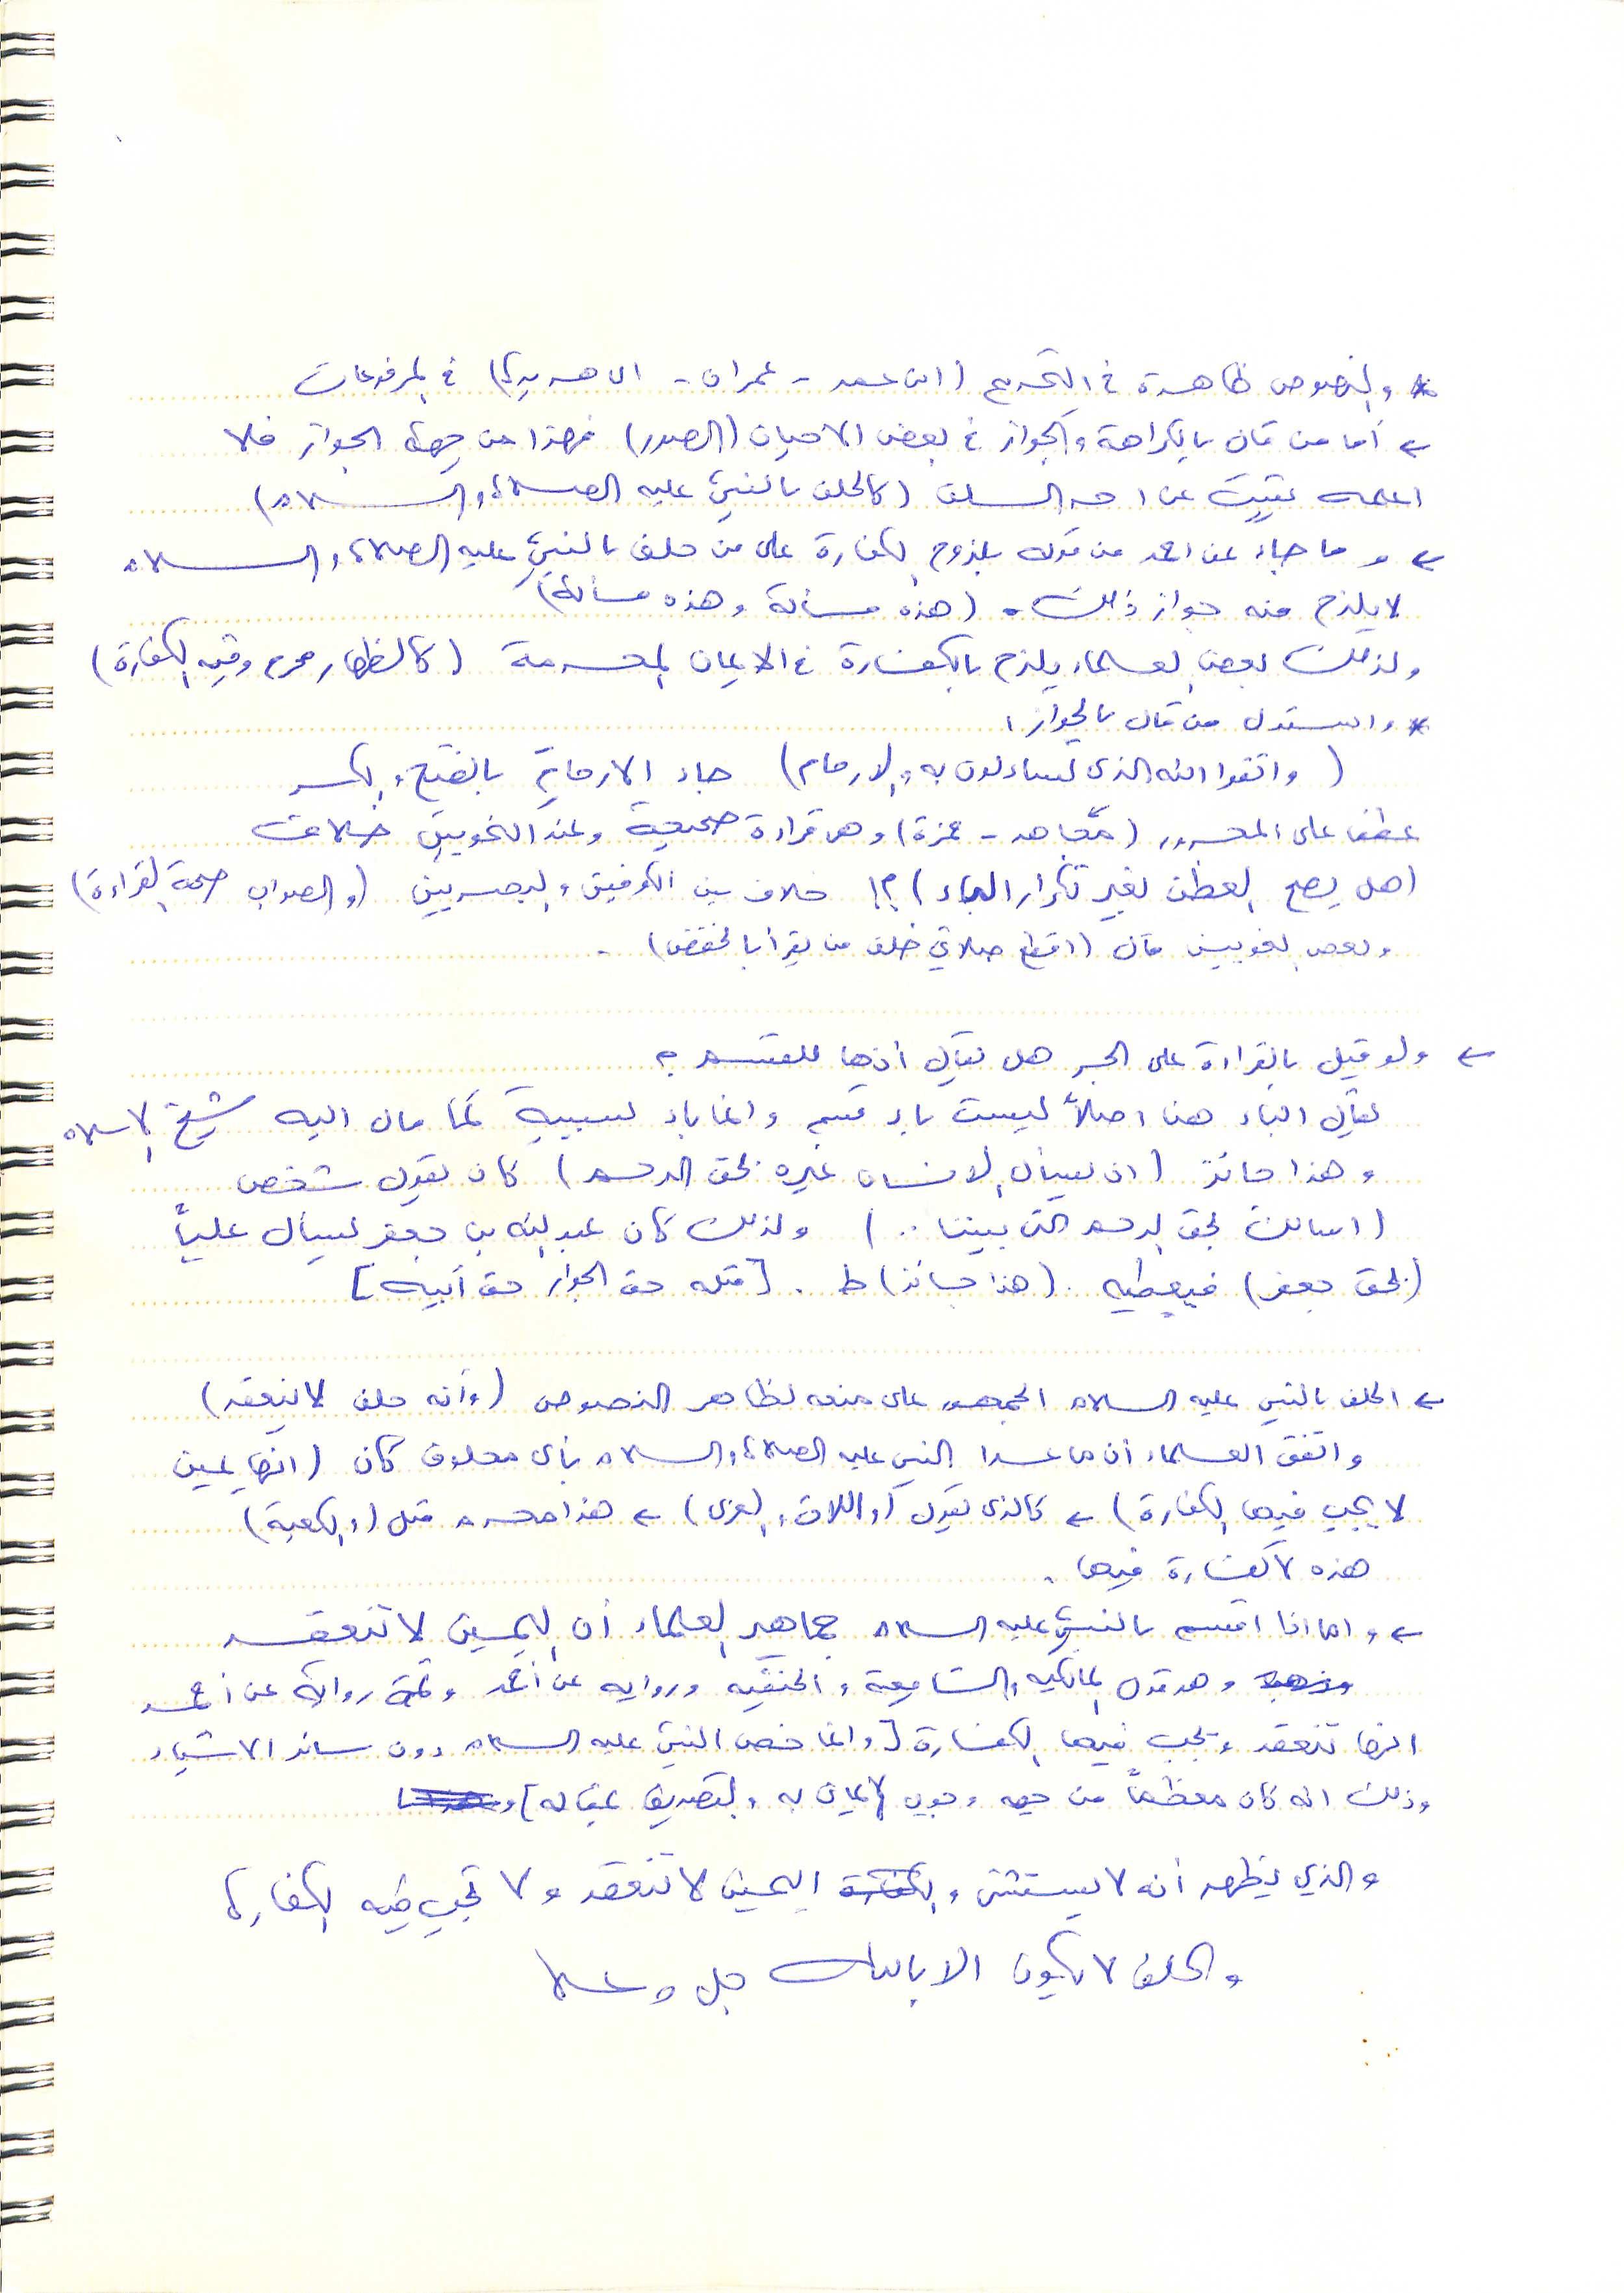 * والنصوص ظاهرة في التحريم (ابن عمر - عمران - ابي هريرة) في المرفوعات
← أما من قال بالكراهة والجواز في بعض الاحيان (الصور) فهذا من جهة الجواز فلا
اعلمه يثبت عن احد السلف (كالحلف بالنبي عليه الصلاة والسلام)
← وما جاء عن احمد من قوله بلزوم الكفارة على من حلف بالنبي عليه الصلاة والسلام
لا يلزم منه جواز ذلك. (هذه مسألة وهذه مسألة)
ولذلك بعض العلماء يلزم بالكفارة في الايمان المحرمة (كالظهار محرم وفيه الكفارة)
* واستدل من قال بالجواز:
(واتقوا الله الذي تساءلون به والارحام) جاء الارحام بالفتح والكسر
عطف على المجرور (مجاهد - حمزة) وهي قراءة صحيحة وعند النحويين خلاف
(هل يصح العطف بغير تكرار الباء)؟! خلاف بين الكوفيين والبصريين (والصواب صحة القراءة)
وبعض اللغويين قال (اقطع صلاتي خلف من يقرأ بالخفض).
← ولو قيل بالقراءة على الجر هل يقال أنها للقسم؟
يقال الباء هنا اصلاً ليست باء قسم وانما باء لسببية كما مال اليه شيخ الاسلام
وهذا جائز (ان يسأل الانسان غيره بحق الرحم) كان يقول شخص
(اسالك بحق الرحم التي بيننا ..) ولذلك كان عبد الله بن جعفر يسأل علياً
(بحق جعفر) فيعطيه. (هذا جائز) ط. [مثله حق الجوار حق أبيه]
← الحلف بالنبي عليه السلام الجمهور على منعه لظاهر النصوص (وأنه حلف لا ينعقد)
واتفق العلماء أن ما عدا النبي عليه الصلاة والسلام بأي مخلوق كان (انها يمين
لا يجب فيها الكفارة) ← كالذي يقول (واللات والعزى) ← هذا محرم مثل (والكعبة)
هذه لا كفارة فيها.
← واما اذا اقسم بالنبي عليه السلام جماهير العلماء أن اليمين لا تنعقد
وهو قول المالكيه والشافعية والحنفيه وروايه عن أحمد وثمة رواية عن أحمد
انها تنعقد ويجب فيها الكفارة [وانما خص النبي عليه السلام دون سائر الاشياء
وذلك انه كان معظماً من حيث وجوب الايمان به والتصديق بمقاله]
والذي يظهر أنه لا يستثنى و اليمين لا تنعقد ولا تجب فيه الكفارة
والحلف لا يكون الا بالله جل وعلا